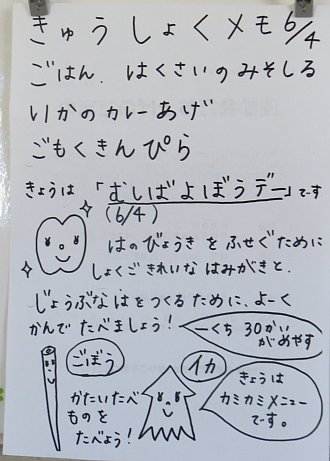 きゅうしょくメモ 6/4
ごはん、はくさいのみそしる
いかのカレーあげ
ごもくきんぴら
きょうは「むしばよぼうデー」です
(6/4)
はのびょうきをふせぐために
しょくごきれいなはみがきと、
じょうぶなはをつくるために、よーく
かんでたべましょう!
一くち30かい
がめやす
ごぼう
イカ
かたいたべ
ものを
たべよう!
きょうは
カミカミメニュー
です。